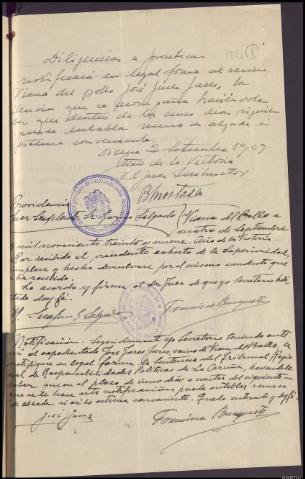 Diligencias a practicar
notificará en legal forma al vecino
Viana del Bollo José Jares Jares, la
que se acompaña haciéndole
que dentro de los cinco dias siguien
puede entablar recurso de alzada si
estima conveniente.
Orense 2 Setiembre 19
Año de la Victoria
El Juez Instructor
Providencia
Juez Suplente Sr. Salgado Viana del Bollo a
cuatro de septiembre
mil novecientos treinta y nueve. Año de la Victoria.
Por recibido el precedente exhorto de la Superioridad,
cumplase y hecho devuelvase por el mismo conducto que
ha recibido.
lo acordó y firma el Sr Juez de que yo secretario habili
tado doy fé.
Salgado Francisco
Notificación. Seguidamente yo Secretario teniendo ante
mi al expedientado José Jares Jares, vecino de Viana del Bollo, le
notifiqué en legal forma la sentencia del Tribunal Regio
nal de Responsabilidades Politicas de La Coruña, haciendole
saber que en el plazo de cinco dias a contar del siguiente
que se le hace esta notificación puede entablar recurso
de alzada si asi lo estima conveniente. Queda enterado y doy fé.
José Jares Francisco